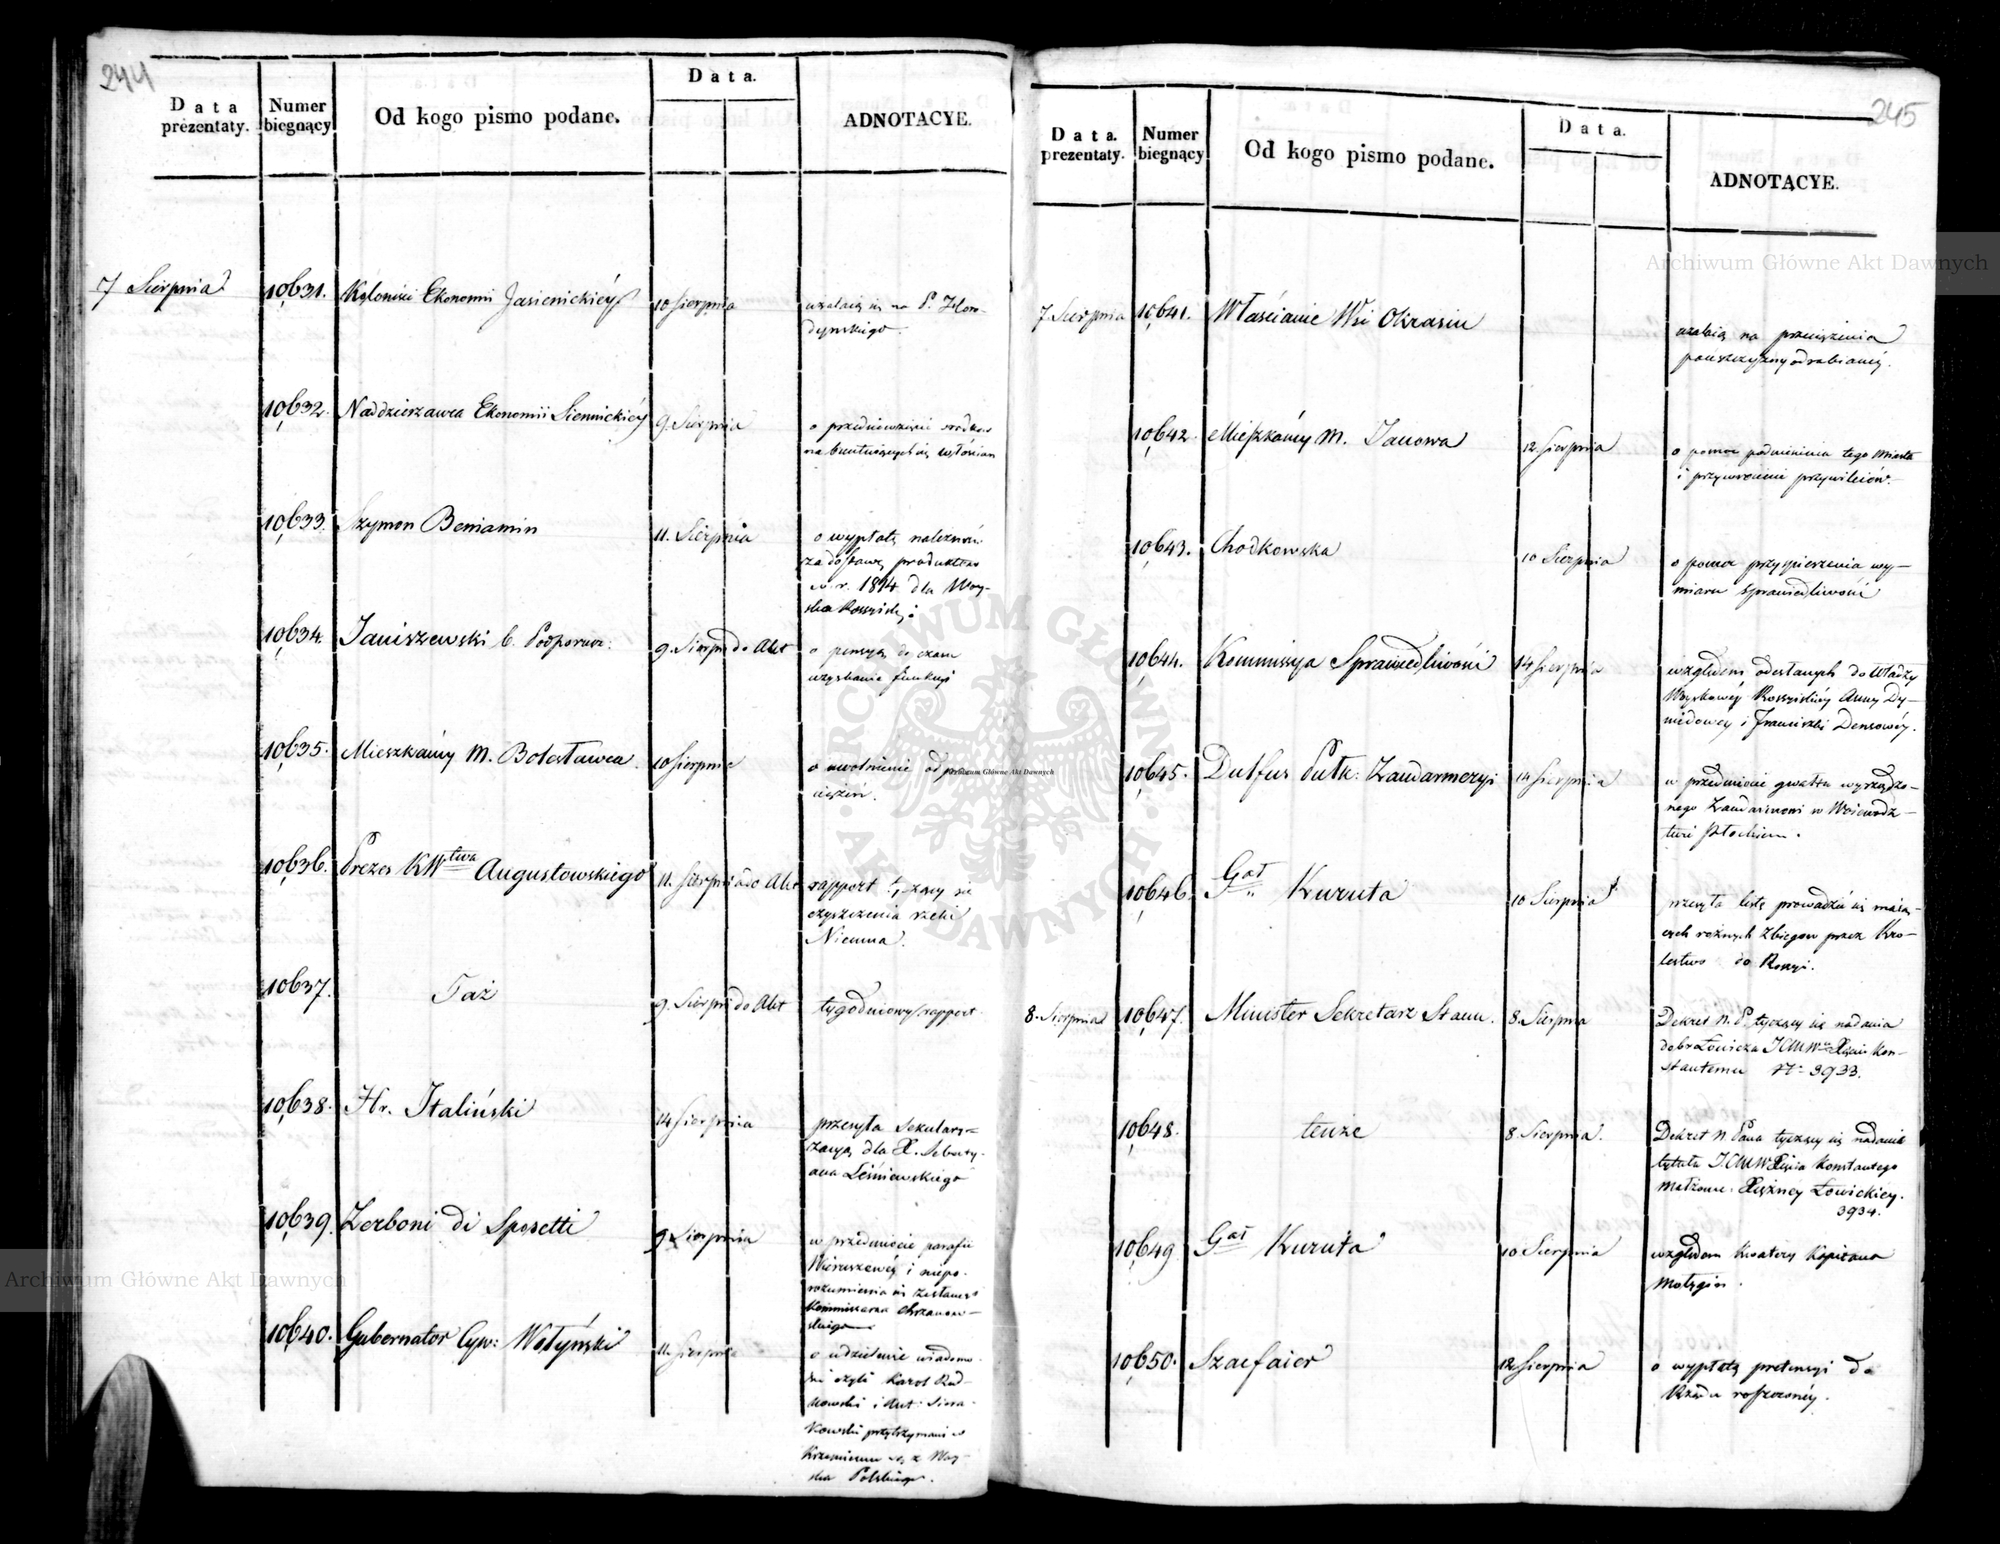 244
Data prezentaty.
Numer biegnący
Od kogo pismo podane.
Data.
ADNOTACYE.
7 Sierpnia
10,631. Koloniści Ekonomii Jasienickiéy 10 Sierpnia użalaią się na P. Horo-
dyńskiego.
10,632. Naddzierzawca Ekonomii Siennickiéy 9. Sierpnia o przedsiewzięcie środków
na buntuiących się włościan
10,633. Szymon Beniamin 11. Sierpnia o wypłatę należności
za dostawę produktów
w r. 1814 dla Woy-
ska Rossyisk:
10,634. Janiszewski b. Podporucz: 9. Sierpnia do Akt o pensyą do czasu
uzyskania funkcyi
10,635. Mieszkańcy M. Bolesławca. 10 Sierpnia o uwolnienie od
ciężeń.
10,636. Prezes KWtwa Augustowskiego 11. Sierpnia do Akt rapport tyczący się
czyszczenia rzeki
Niemna.
10,637. Taż 9. Sierpnia do Akt tygodniowy rapport.
10,638. Hr. Italiński 14 Sierpnia przesyła Sekulary-
zacyą dla X. Sebasty-
ana Leśniewskiego
10,639. Zerboni di Sposetti 9. Sierpnia w przedmiocie parafii
Wieruszewey i niepo-
rozumienia się
Kommissarza Chrzanow-
skiego
10,640. Gubernator Cyw: Wołyński 11. Sierpnia o udzielenie wiadomo-
ści czyli Karol Rud-
kowski i Ant: Siera-
kowski przytrzymani w
Krzemieńcu są z Woy-
ska Polskiego.
245
Data. prezentaty.
Numer biegnący
Od kogo pismo podane.
Data.
ADNOTACYE.
7 Sierpnia 10,641. Włościanie Wsi Okrasin użalaią na przeciążenia
pańszczyzny odrabianéy.
10,642. Mieszkańcy M. Janowa 12. Sierpnia o pomoc podniesienia tego Miasta
i przywrócenie przywileiów.
10,643. Chodkowska 10 Sierpnia o pomoc przyspieszenia wy-
miaru sprawiedliwości
10,644. Kommissya Sprawiedliwości 14 Sierpnia względem odesłanych do Władzy
Woyskowéy Rossyiskiéy Anny Dy-
midowey i Franciszki Densowéy.
10,645. Dulfus Pułk: Żandarmeryi 14 Sierpnia w przedmiocie gwałtu wyrządzo-
nego Żandarmowi w Woiewódz-
twie Płockiem.
10,646. Gał Kuruta 10 Sierpnia przesyła listę prowadzić się maią-
cych rożnych Zbiegow przez Kró-
lestwo do Rossyi.
8. Sierpnia 10,647. Minister Sekretarz Stanu. 8. Sierpnia Dekret N. P. tyczący się nadania
dobr Łowicza JCMW Xięciu Kon-
stantemu N° 3933.
10,648. tenże 8 Sierpnia. Dekret N. Pana tyczący się nadania
tytułu JCMW Xięcia Konstantego
Małżonce. Xiężnéy Łowickiey.
3934.
10,649 Gał Kuruta 10 Sierpnia względem Kwatery Kapitana
10,650. Szaefaier 12 Sierpnia o wypłatę pretensyi do
Rządu roszczonéy.
Archiwum Główne Akt Dawnych
Archiwum Główne Akt Dawnych
Archiwum Główne Akt Dawnych
ARCHIWUM GŁÓWNE · AKT DAWNYCH ·